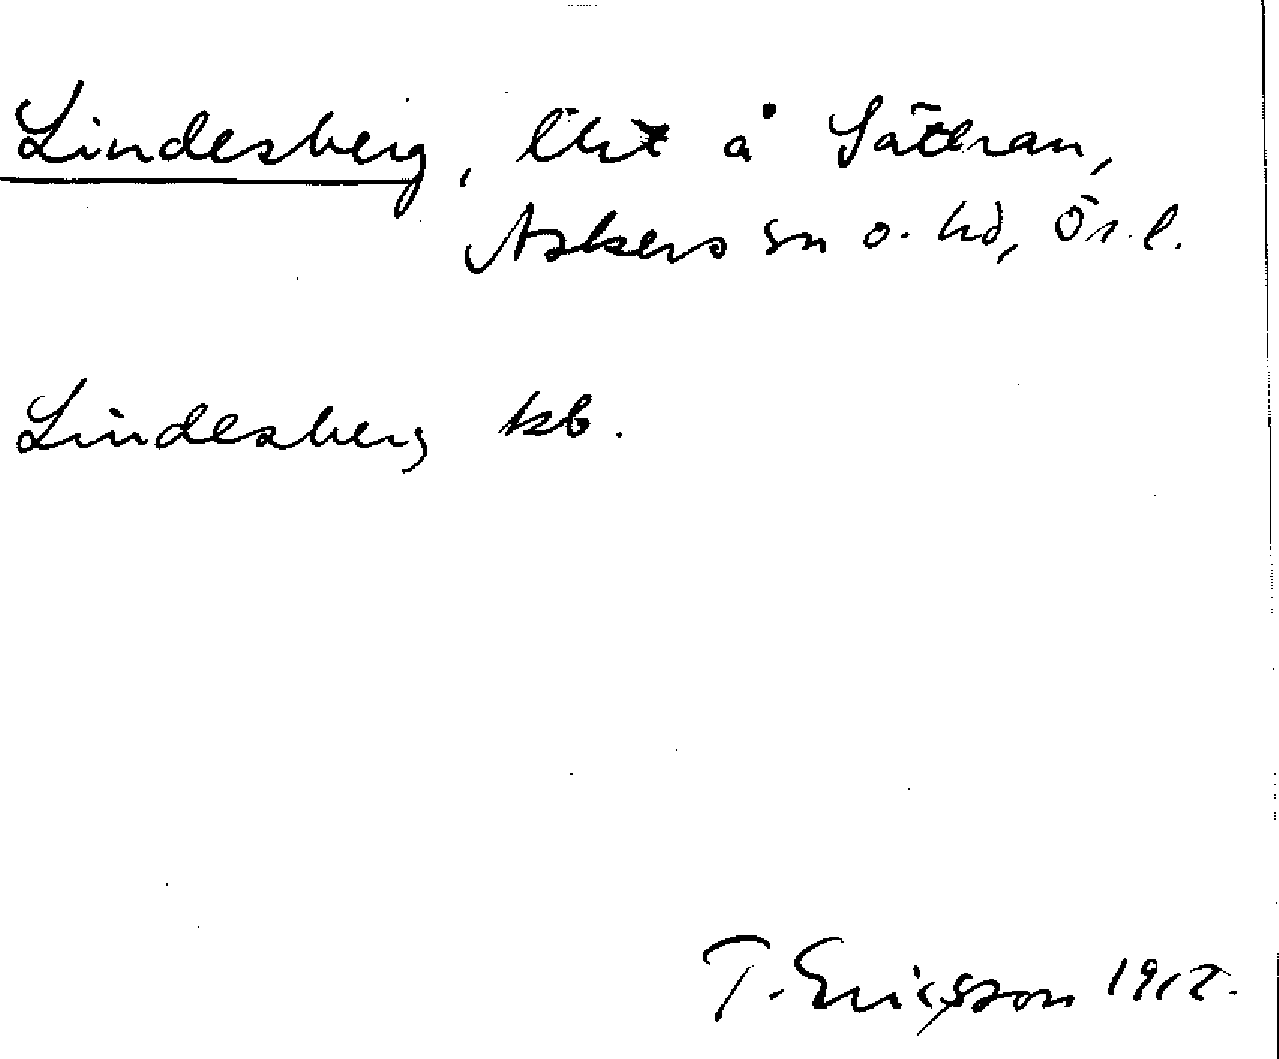 Lindesberg, lht å Sättran,
Askers sn o. hd, Ör. l.
Lindesberg kb.
T. Ericsson 1912.